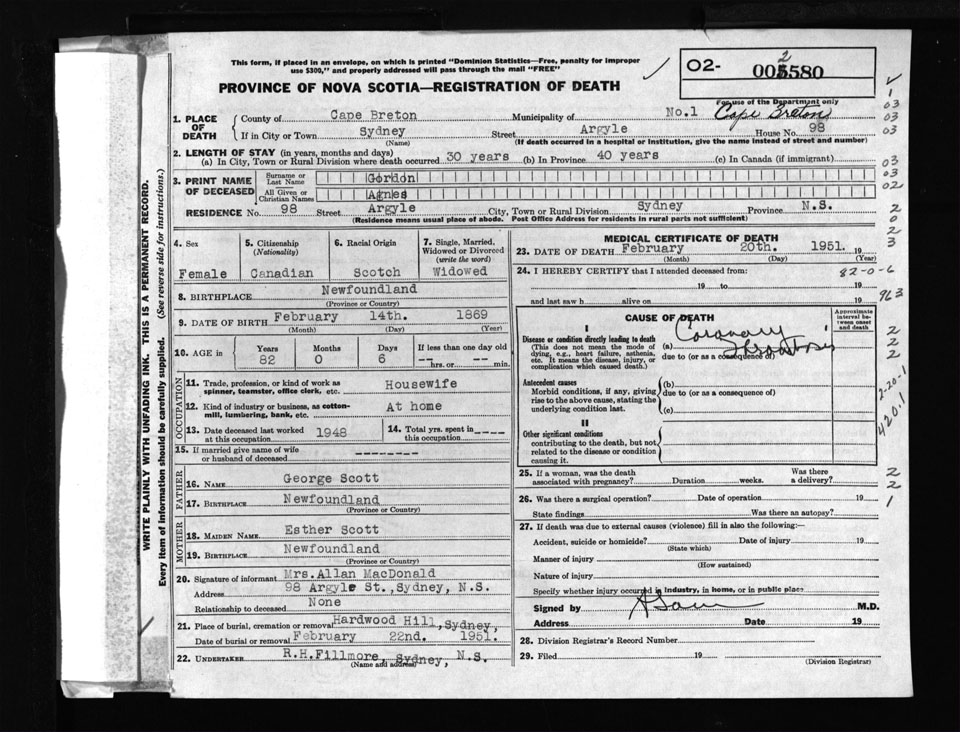 This form, if placed in an envelope, on which is printed "Dominion Statistics—Free, penalty for improper
use $300," and properly addressed will pass through the mail "FREE"
O2- 005580
2
PROVINCE OF NOVA SCOTIA—REGISTRATION OF DEATH
For use of the Department only
Cape Breton
1. PLACE OF DEATH
County of Cape Breton Municipality of No.1
If in City or Town Sydney Street Argyle House No. 98
(Name) (If death occurred in a hospital or institution, give the name instead of street and number)
2. LENGTH OF STAY (in years, months and days)
(a) In City, Town or Rural Division where death occurred 30 years (b) In Province 40 years (c) In Canada (if immigrant)
3. PRINT NAME OF DECEASED
Surname or Last Name Gordon
All Given or Christian Names Agnes
RESIDENCE No. 98 Street Argyle City, Town or Rural Division Sydney Province N.S.
(Residence means usual place of abode. Post Office Address for residents in rural parts not sufficient)
4. Sex
Female
5. Citizenship
(Nationality)
Canadian
6. Racial Origin
Scotch
7. Single, Married, Widowed or Divorced
(write the word)
Widowed
8. BIRTHPLACE Newfoundland
(Province or Country)
9. DATE OF BIRTH February 14th. 1869
(Month) (Day) (Year)
10. AGE in
Years Months Days If less than one day old
82 0 6 -- hrs. or -- min.
OCCUPATION
11. Trade, profession, or kind of work as
spinner, teamster, office clerk, etc. Housewife
12. Kind of industry or business, as cotton-
mill, lumbering, bank, etc. At home
13. Date deceased last worked
at this occupation 1948
14. Total yrs. spent in
this occupation ----
15. If married give name of wife
or husband of deceased --------
FATHER
16. NAME George Scott
17. BIRTHPLACE Newfoundland
(Province or Country)
MOTHER
18. MAIDEN NAME Esther Scott
19. BIRTHPLACE Newfoundland
(Province or Country)
20. Signature of informant Mrs.Allan MacDonald
Address 98 Argyle St.,Sydney, N.S.
Relationship to deceased None
21. Place of burial, cremation or removal Hardwood Hill,Sydney,
Date of burial or removal February 22nd. 1951.
22. UNDERTAKER R.H.Fillmore, Sydney, N.S.
(Name and address)
MEDICAL CERTIFICATE OF DEATH
23. DATE OF DEATH February 20th. 1951. 19
(Month) (Day) (Year)
24. I HEREBY CERTIFY that I attended deceased from:
82-0-6
19 to 19
and last saw h alive on 19
963
CAUSE OF DEATH
Approximate interval between onset and death
I
Disease or condition directly leading to death
(This does not mean the mode of
dying, e.g., heart failure, asthenia,
etc. It means the disease, injury, or
complication which caused death.)
(a) Coronary Thrombosis
due to (or as a consequence of)
Antecedent causes
Morbid conditions, if any, giving
rise to the above cause, stating the
underlying condition last.
(b)
due to (or as a consequence of)
(c)
II
Other significant conditions
contributing to the death, but not
related to the disease or condition
causing it.
25. If a woman, was the death
associated with pregnancy? Duration weeks. Was there a delivery?
26. Was there a surgical operation? Date of operation 19
State findings Was there an autopsy?
27. If death was due to external causes (violence) fill in also the following:—
Accident, suicide or homicide? Date of injury 19
(State which)
Manner of injury
(How sustained)
Nature of injury
Specify whether injury occurred in industry, in home, or in public place
Signed by M.D.
Address Date 19
28. Division Registrar's Record Number
29. Filed 19
(Division Registrar)
1
03
03
03
03
03
02
2
0
2
3
2
2
2
2-20-1
420.1
2
2
1
WRITE PLAINLY WITH UNFADING INK. THIS IS A PERMANENT RECORD.
Every item of information should be carefully supplied. (See reverse side for instructions.)